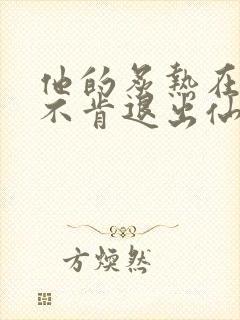 他的炙热在
不肯退出仙
方焕然